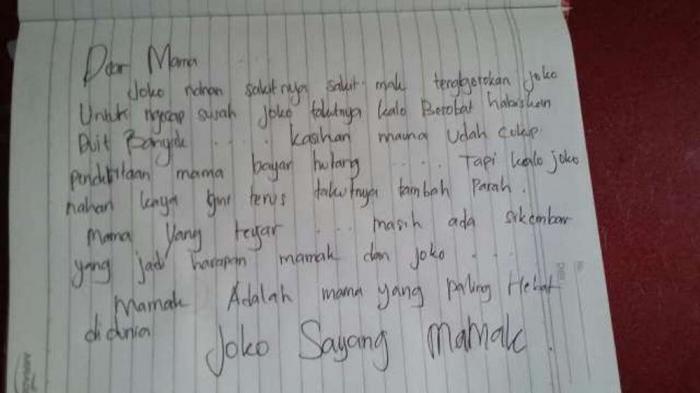 Dear Mama
Joko nahan sakitnya sakit mak tenggorokan joko
Untuk ngecap susah joko takutnya kalo Berobat habiskan
Duit Banyak .... kasihan mama Udah cukup
penderitaan mama bayar hutang .... Tapi kalo joko
nahan kaya gini terus takutnya tambah Parah.
Mama yang tegar ... masih ada sikembar
yang jadi harapan mamak dan joko ...
Mamak Adalah mama yang paling Hebat
di dunia
Joko Sayang mamak.